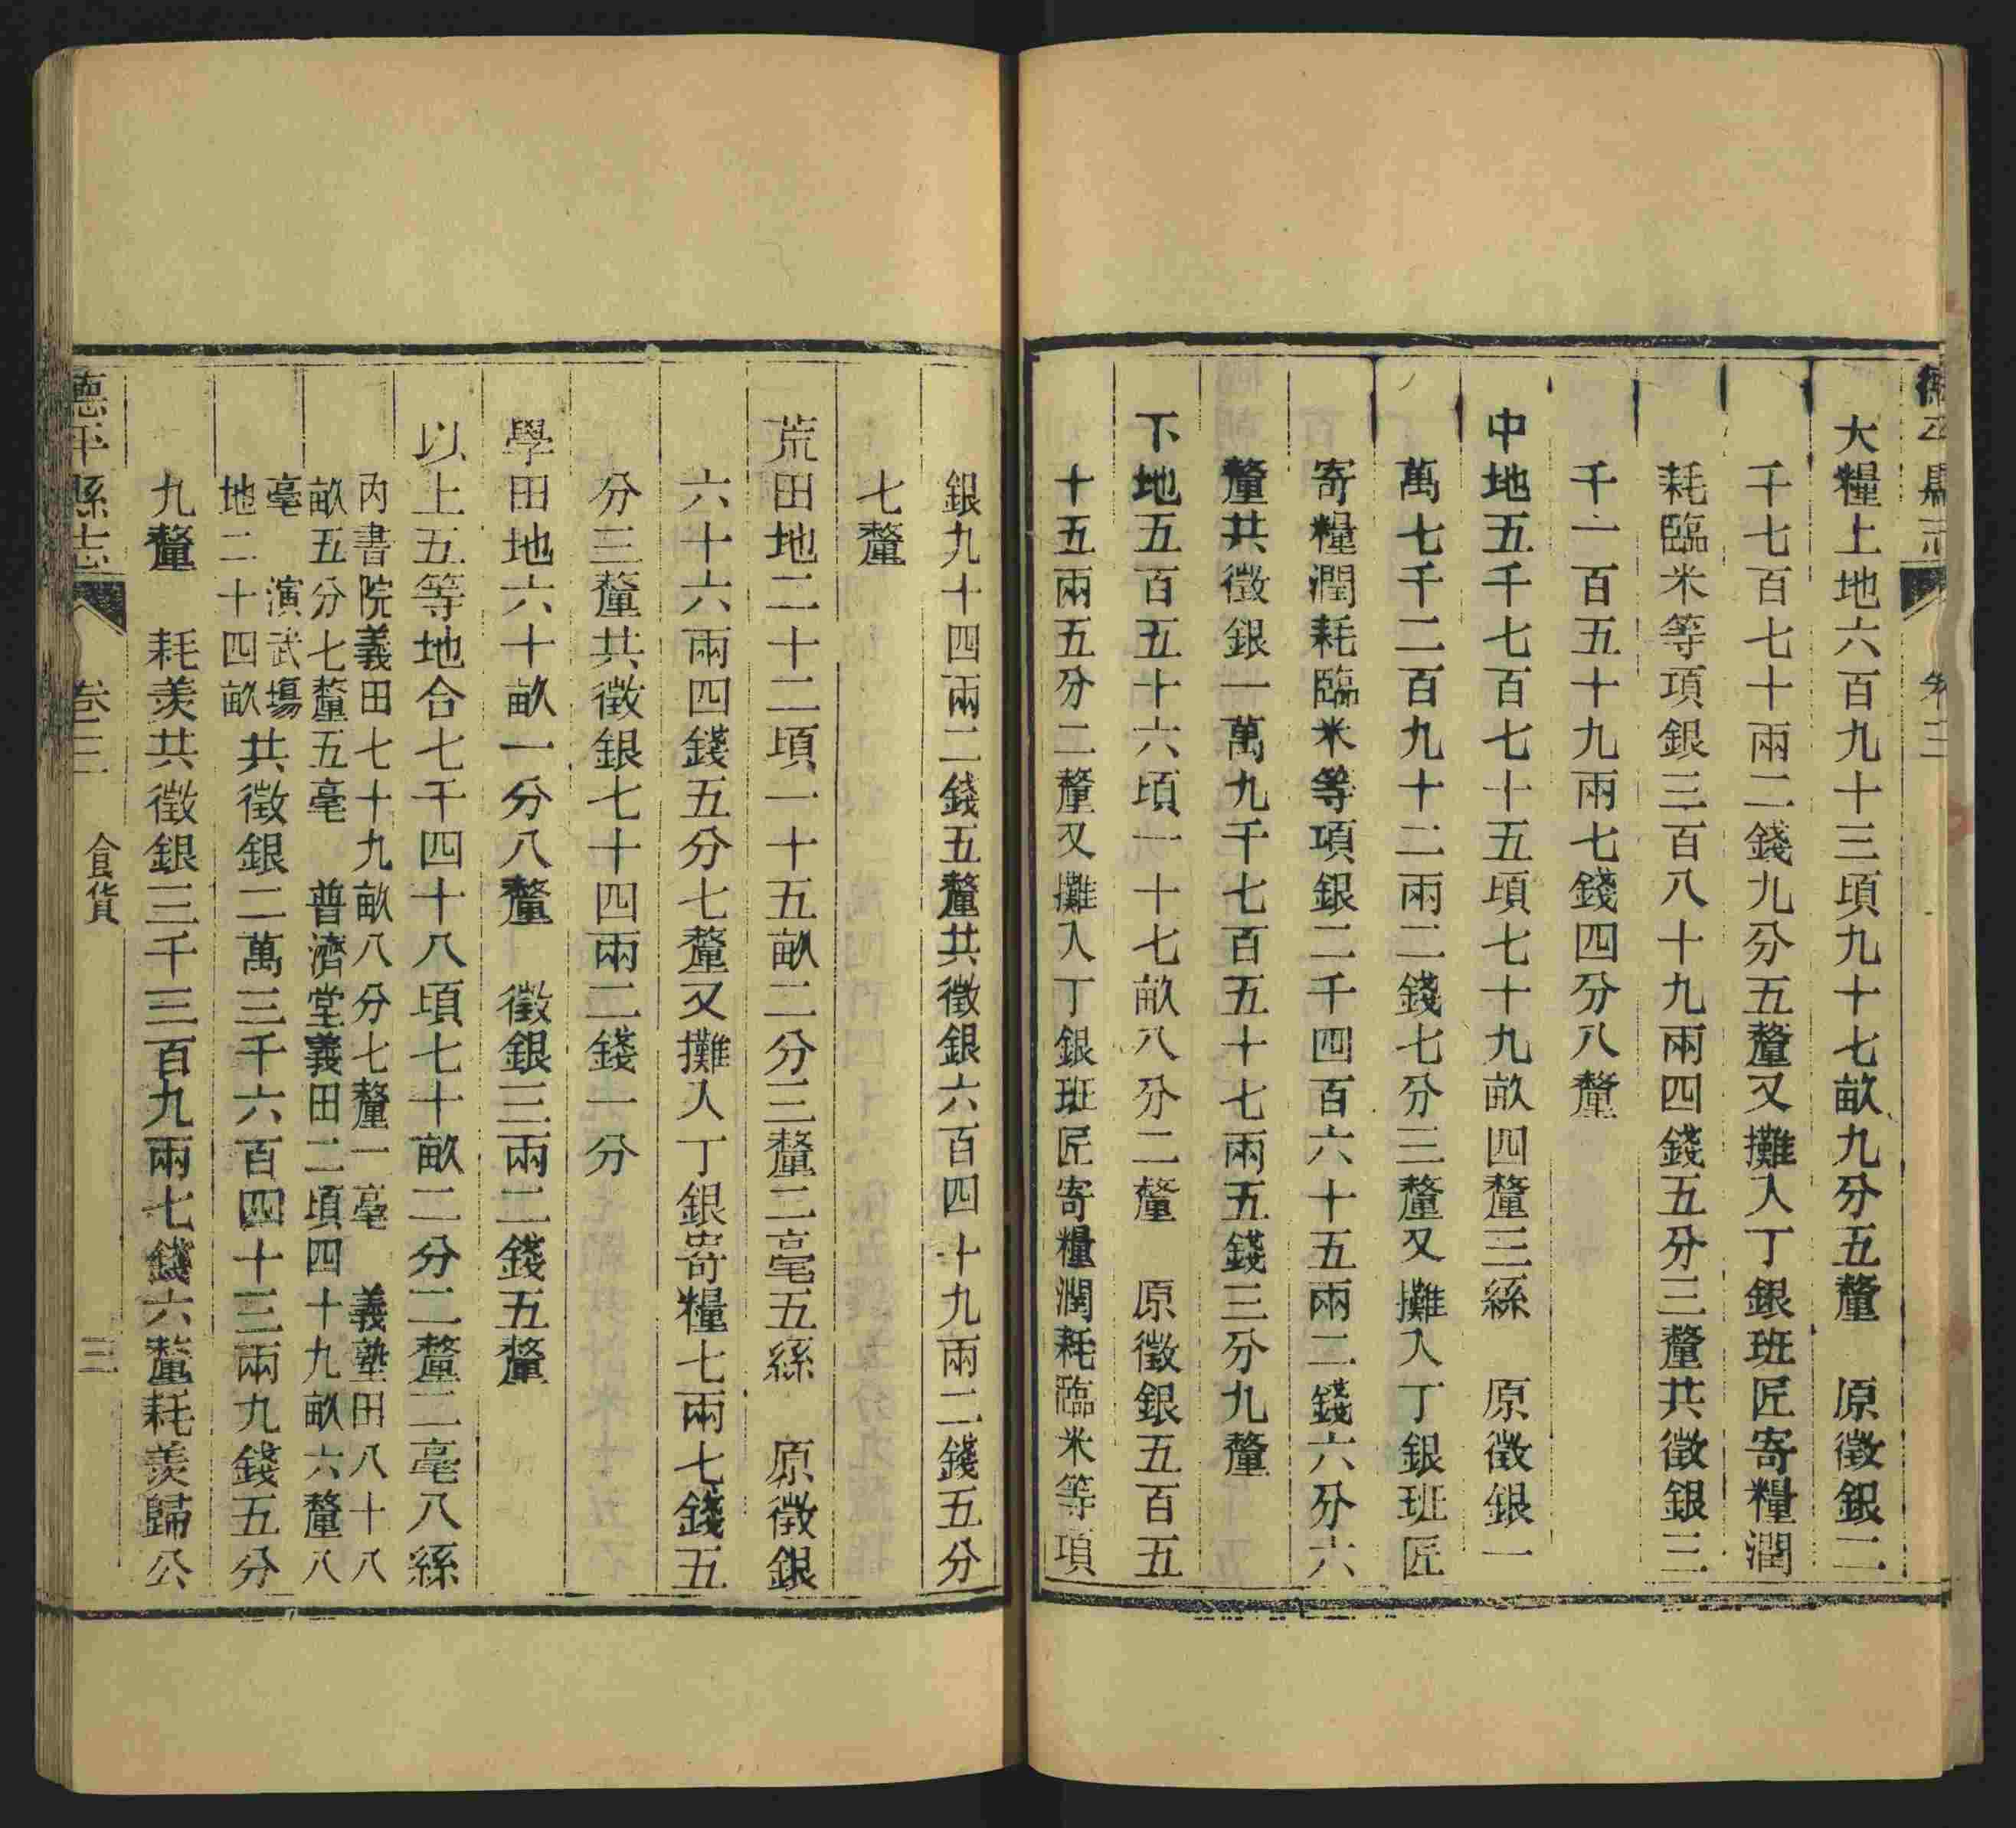 德平縣志 卷三
大糧上地六百九十三頃九十七畝九分五釐 原徵銀二
千七百七十兩二錢九分五釐又攤入丁銀班匠寄糧潤
耗臨米等項銀三百八十九兩四錢五分三釐共徵銀三
千一百五十九兩七錢四分八釐
中地五千七百七十五頃七十九畝四釐三絲 原徵銀一
萬七千二百九十二兩二錢七分三釐又攤入丁銀班匠
寄糧潤耗臨米等項銀二千四百六十五兩二錢六分六
釐共徵銀一萬九千七百五十七兩五錢三分九釐
下地五百五十六頃一十七畝八分二釐 原徵銀五百五
十五兩五分二釐又攤入丁銀班匠寄糧潤耗臨米等項
銀九十四兩二錢五釐共徵銀六百四十九兩二錢五分
七釐
荒田地二十二頃一十五畝二分三釐三毫五絲 原徵銀
六十六兩四錢五分七釐又攤入丁銀寄糧七兩七錢五
分三釐共徵銀七十四兩二錢一分
學田地六十畝一分八釐 徵銀三兩二錢五釐
以上五等地合七千四十八頃七十畝二分二釐二毫八絲
內書院義田七十九畝八分七釐一毫 義塾田八十八
畝五分七釐五毫 普濟堂義田二頃四十九畝六釐八
毫 演武場
地二十四畝
共徵銀二萬三千六百四十三兩九錢五分
九釐 耗羨共徵銀三千三百九兩七錢六釐耗羨歸公
德平縣志 卷三 食貨 三